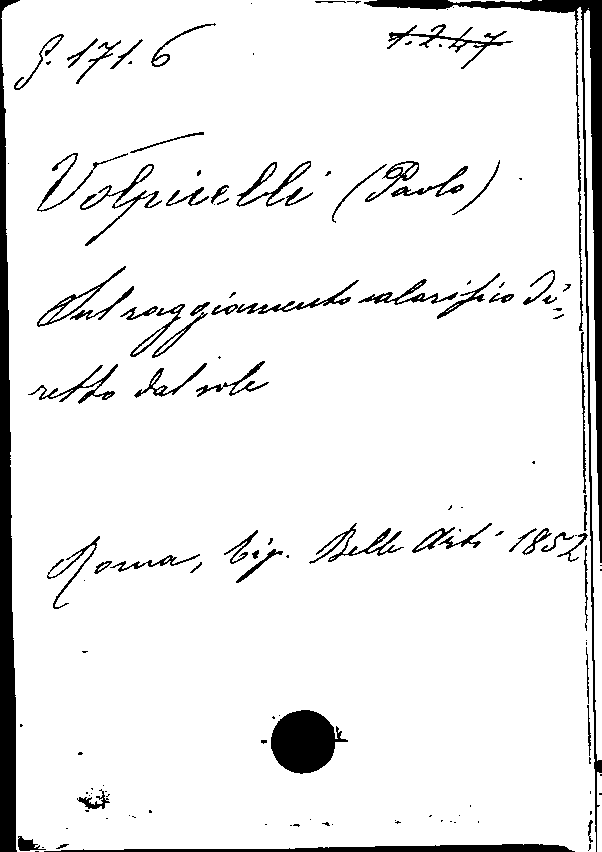 G. 171. 6
1.2.47
Volpicelli (Paolo)
Sul raggiamento calorifico di=
retto dal sole
Roma, tip. Belle Arti 1852